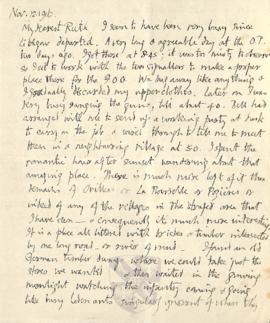 Nov. 12. 1916.
My dearest Ruth I seem to have been very busy since
departed. A very big & agreeable day at the O.P.
two days ago. I got there at 8.45; it was too misty to observe
& I set to work with the two signallers to make a proper
place there for the F.O.O. We dug away like anything &
I gradually discarded my upper clothes. Later on I was
very busy ranging the guns, till about 4.0. Bell had
arranged with me to send up a working party, at dusk
to carry on the job & would through to tell me to meet
them in a neighbouring village at 5.0. I spent the
romantic hour after sunset wandering about that
amazing place. There is much more left of it than
remains of Oviller or La Boiselle or Pozieres or
indeed of any of the villages in the strafed area that
I have seen — & consequently it's much more interesting.
It is a place all littered with bricks & timber intersected
by one long road — or river of mud. I found an old
German timber dump where we could take just the
stores we wanted & then waited in the growing
moonlight watching the infantry coming & going
like busy labor ants singularly ignorant of where they